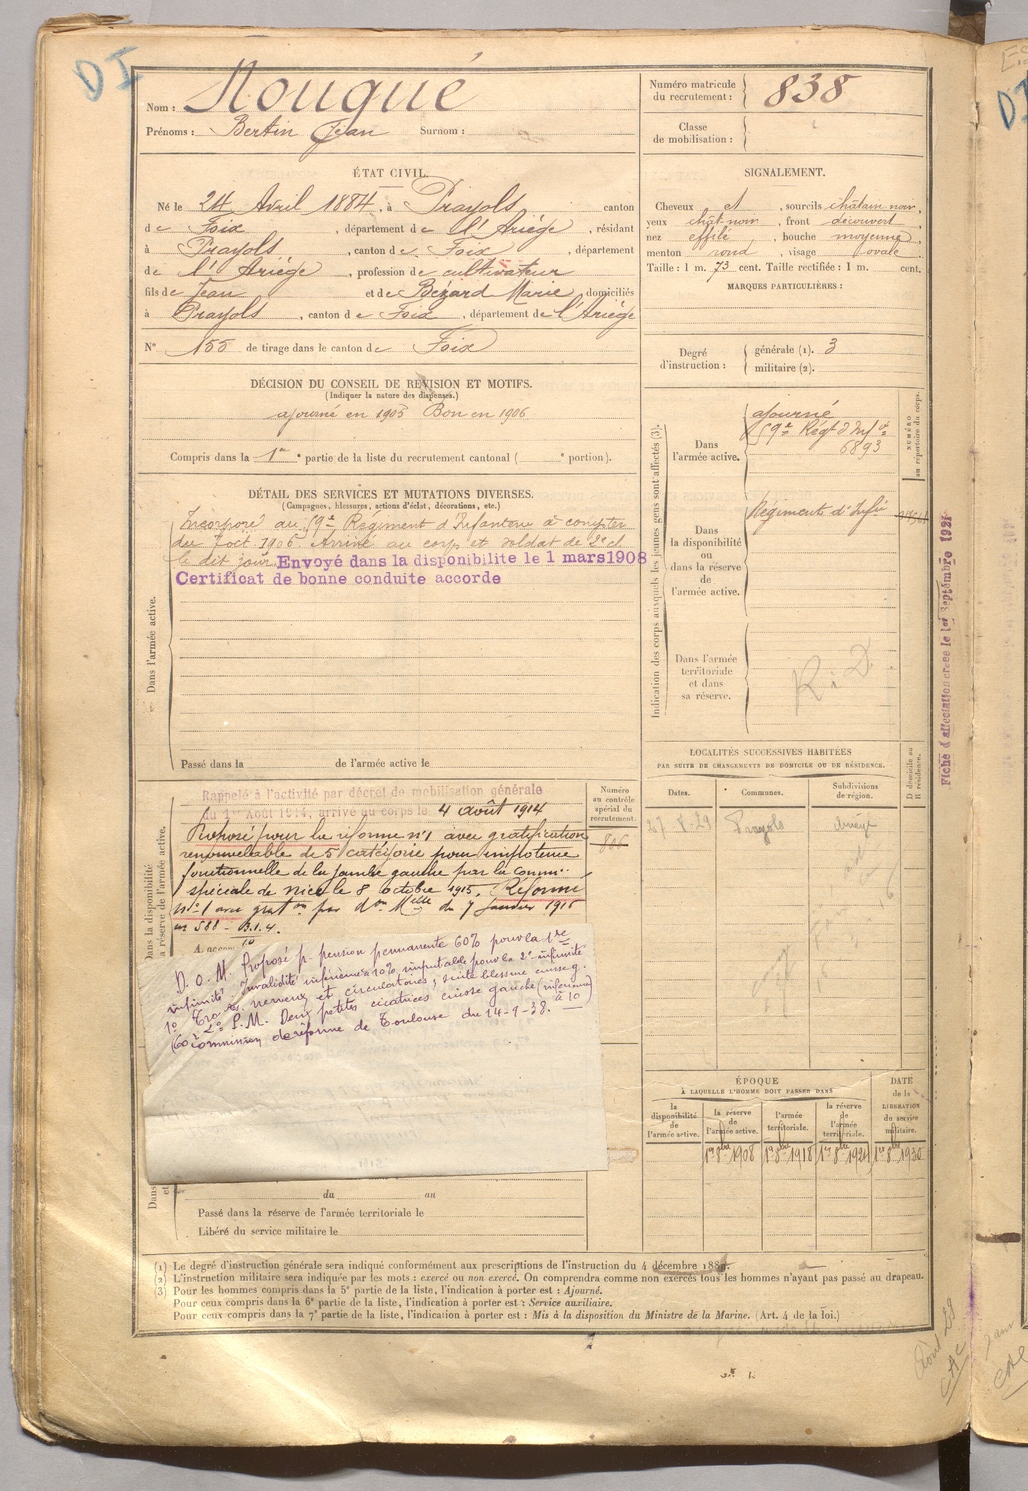 D I
Nom : Nougué
Prénoms : Bertin Jean Surnom :
Numéro matricule
du recrutement : 838
Classe
de mobilisation :
ÉTAT CIVIL.
Né le 24 Avril 1884, à Prayols canton
de Foix, département de l'Ariège, résidant
à Prayols, canton de Foix, département
de l'Ariège, profession de cultivateur
fils de Jean et de Bézard Marie, domiciliés
à Prayols, canton de Foix, département de l'Ariège
N° 155 de tirage dans le canton de Foix
SIGNALEMENT.
Cheveux et, sourcils châtain noir,
yeux chât-noir, front découvert,
nez effilé, bouche moyenne,
menton rond, visage ovale.
Taille : 1 m. 73 cent. Taille rectifiée : 1 m. cent.
MARQUES PARTICULIÈRES :
Degré
d'instruction :
générale (1). 3
militaire (2).
DÉCISION DU CONSEIL DE RÉVISION ET MOTIFS.
(Indiquer la nature des dispenses.)
ajourné en 1905 Bon en 1906
Compris dans la 1re partie de la liste du recrutement cantonal ( e portion).
DÉTAIL DES SERVICES ET MUTATIONS DIVERSES.
(Campagnes, blessures, actions d'éclat, décorations, etc.)
Incorporé au 59e Régiment d'Infanterie à compter
du 7 oct 1906. Arrivé au corps et soldat de 2e cl
le dit jour. Envoyé dans la disponibilite le 1 mars 1908
Certificat de bonne conduite accorde
Dans l'armée active.
Passé dans la de l'armée active le
Indication des corps auxquels les jeunes gens sont affectés (3).
NUMÉRO
au répertoire du corps.
Dans
l'armée active.
ajourné
59e Régt d'Infie
6893
Dans
la disponibilité
ou
dans la réserve
de
l'armée active.
Régiment d'Infie
Dans l'armée
territoriale
et dans
sa réserve.
R i D
Fiche d'affectation créée le 1er Septembre 1921
LOCALITÉS SUCCESSIVES HABITÉES
PAR SUITE DE CHANGEMENTS DE DOMICILE OU DE RÉSIDENCE.
Dates.
Communes.
Subdivisions
de région.
D domicile ou
R résidence.
Prayols
Rappelé à l'activité par décret de mobilisation générale
du 1er Août 1914, arrivé au corps le 4 août 1914
Proposé pour la réforme n°1 avec gratification
renouvelable de 5e catégorie pour impotence
fonctionnelle de la jambe gauche par la Comm.
spéciale de Nice le 8 octobre 1915. Réformé
n°1 avec grat on par don Mlle du 7 Janvier 1916
Numéro
au contrôle
spécial du
recrutement.
806
D.O.M. Proposé p. pension permanente 60% pour la 1re
infirmité Invalidité inférieure à 10% imputable pour la 2e infirmité
1° Tro nerveux et circulatoires, suite blessure cuisse g.
2° P.M. Deux petites cicatrices cuisse gauche (inférieure
à 10)
(60 Commission de réforme de Toulouse du 14-9-38.
du au
Passé dans la réserve de l'armée territoriale le
Libéré du service militaire le
ÉPOQUE
À LAQUELLE L'HOMME DOIT PASSER DANS
DATE
de la
LIBÉRATION
du service
militaire.
la
disponibilité
de
l'armée active.
la réserve
de
l'armée active.
l'armée
territoriale.
la réserve
de
l'armée
territoriale.
1er 8bre 1908 1er 8bre 1918 1er 8bre 1924 1er 8bre 1930
(1) Le degré d'instruction générale sera indiqué conformément aux prescriptions de l'instruction du 4 décembre 1889.
(2) L'instruction militaire sera indiquée par les mots : exercé ou non exercé. On comprendra comme non exercés tous les hommes n'ayant pas passé au drapeau.
(3) Pour les hommes compris dans la 5e partie de la liste, l'indication à porter est : Ajourné.
Pour ceux compris dans la 6e partie de la liste, l'indication à porter est : Service auxiliaire.
Pour ceux compris dans la 7e partie de la liste, l'indication à porter est : Mis à la disposition du Ministre de la Marine. (Art. 4 de la loi.)